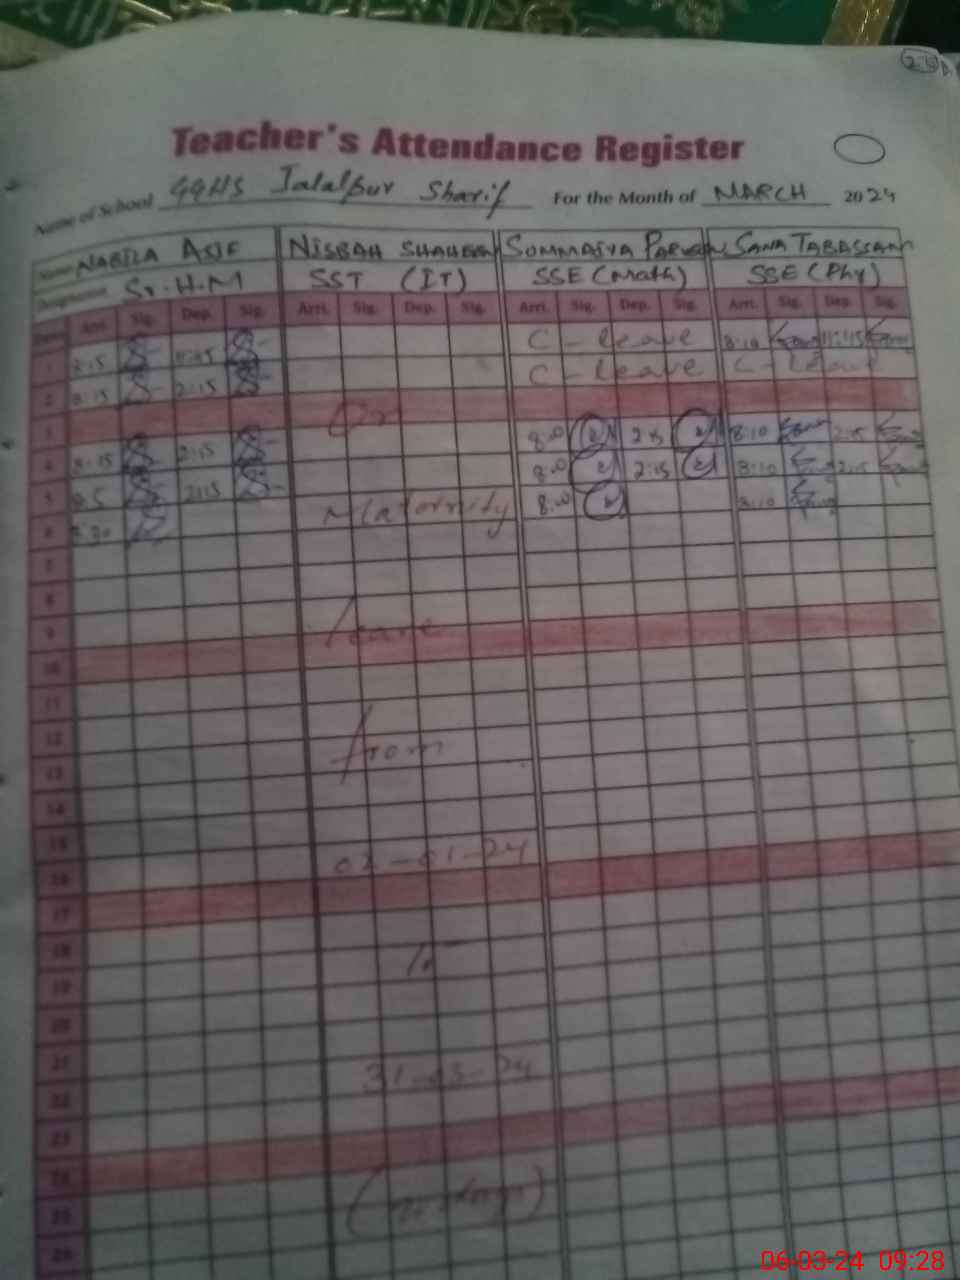 Teacher's Attendance Register
Name of School GGHS Jalalpur Sharif For the Month of MARCH 2024
Name NABILA ASIF NISBAH SHAHEEN SOMMAIYA PARVEEN SANA TABASSAM
Designation Sr. H.M SST (IT) SSE (Math) SSE (Phy)
Date Arri. Sig. Dep. Sig. Arri. Sig. Dep. Sig. Arri. Sig. Dep. Sig. Arri. Sig. Dep. Sig.
1 8:15 11:45 C - leave 8:10 11:45
2 8:15 2:15 C - leave C - leave
3 On
4 8:15 2:15 8:00 2:15 8:10 2:15
5 8:5 2:15 8:00 2:15 8:10 2:15
6 8:30 Maternity 8:00 8:10
7
8
9 leave
10
11
12 from
13
14
15 02-01-24
16
17
18 to
19
20
21 31-03-24
22
23
24
25 days)
26
06-03-24 09:28